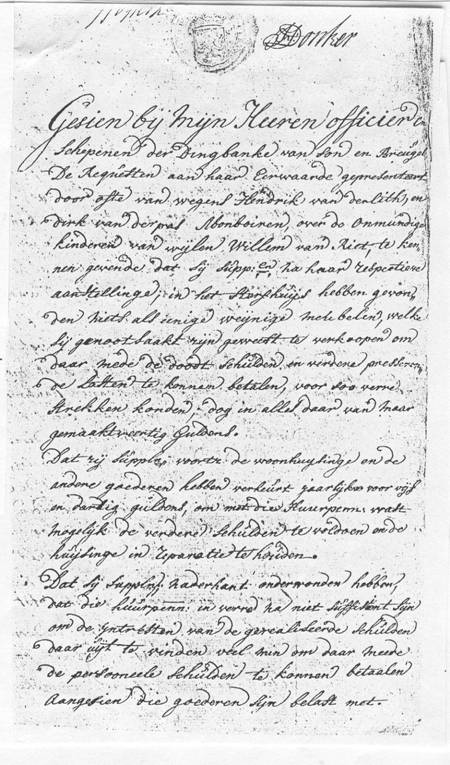 JDonker
Gesien bij Mijn Heeren officier en
Schepenen der Dingbanke van Son en Breugel
De Requesten aan haar Eerwaarde gepresenteert
door ofte van wegens Hendrik van der Lith, en
dirk van der pas Momboiren, over de Onmundige
kinderen van wijlen Willem van Riet, te ken
nen gevende dat sij Supp:en na haar respectieve
aanstellinge, in het Sterfhuijs hebben gevon
den niets als eenige weynige meubelen, welke
sij genootsaakt zijn geweest te verkoopen om
daar mede de doodt schulden en verdere presseren
de Lasten te konnen betalen, voor soo verre
Strekken konden, dog in alles daar van maar
gemaakt veertig Guldens.
Dat zij Supplten voorts de woonhuysinge en de
andere goederen hebben verhuurt jaarlijkx voor vijf
en dartig guldens, om met die Huurpenn: wast
mogelijk de verdere Schulden te voldoen en de
huijsinge in reparatie te houden.
Dat Sij Supplten naderhant ondervonden hebben,
dat die huurpenn: in verre na niet Suffisant Sijn
om de Intresten van de gerealiseerde Schulden
daar uijt te vinden veel min om daar meede
de personeele Schulden te konnen betaalen
Aangesien die goederen Sijn belast met.